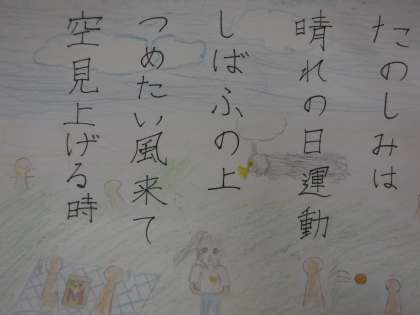 たのしみは
晴れの日運動
しばふの上
つめたい風来て
空見上げる時
M